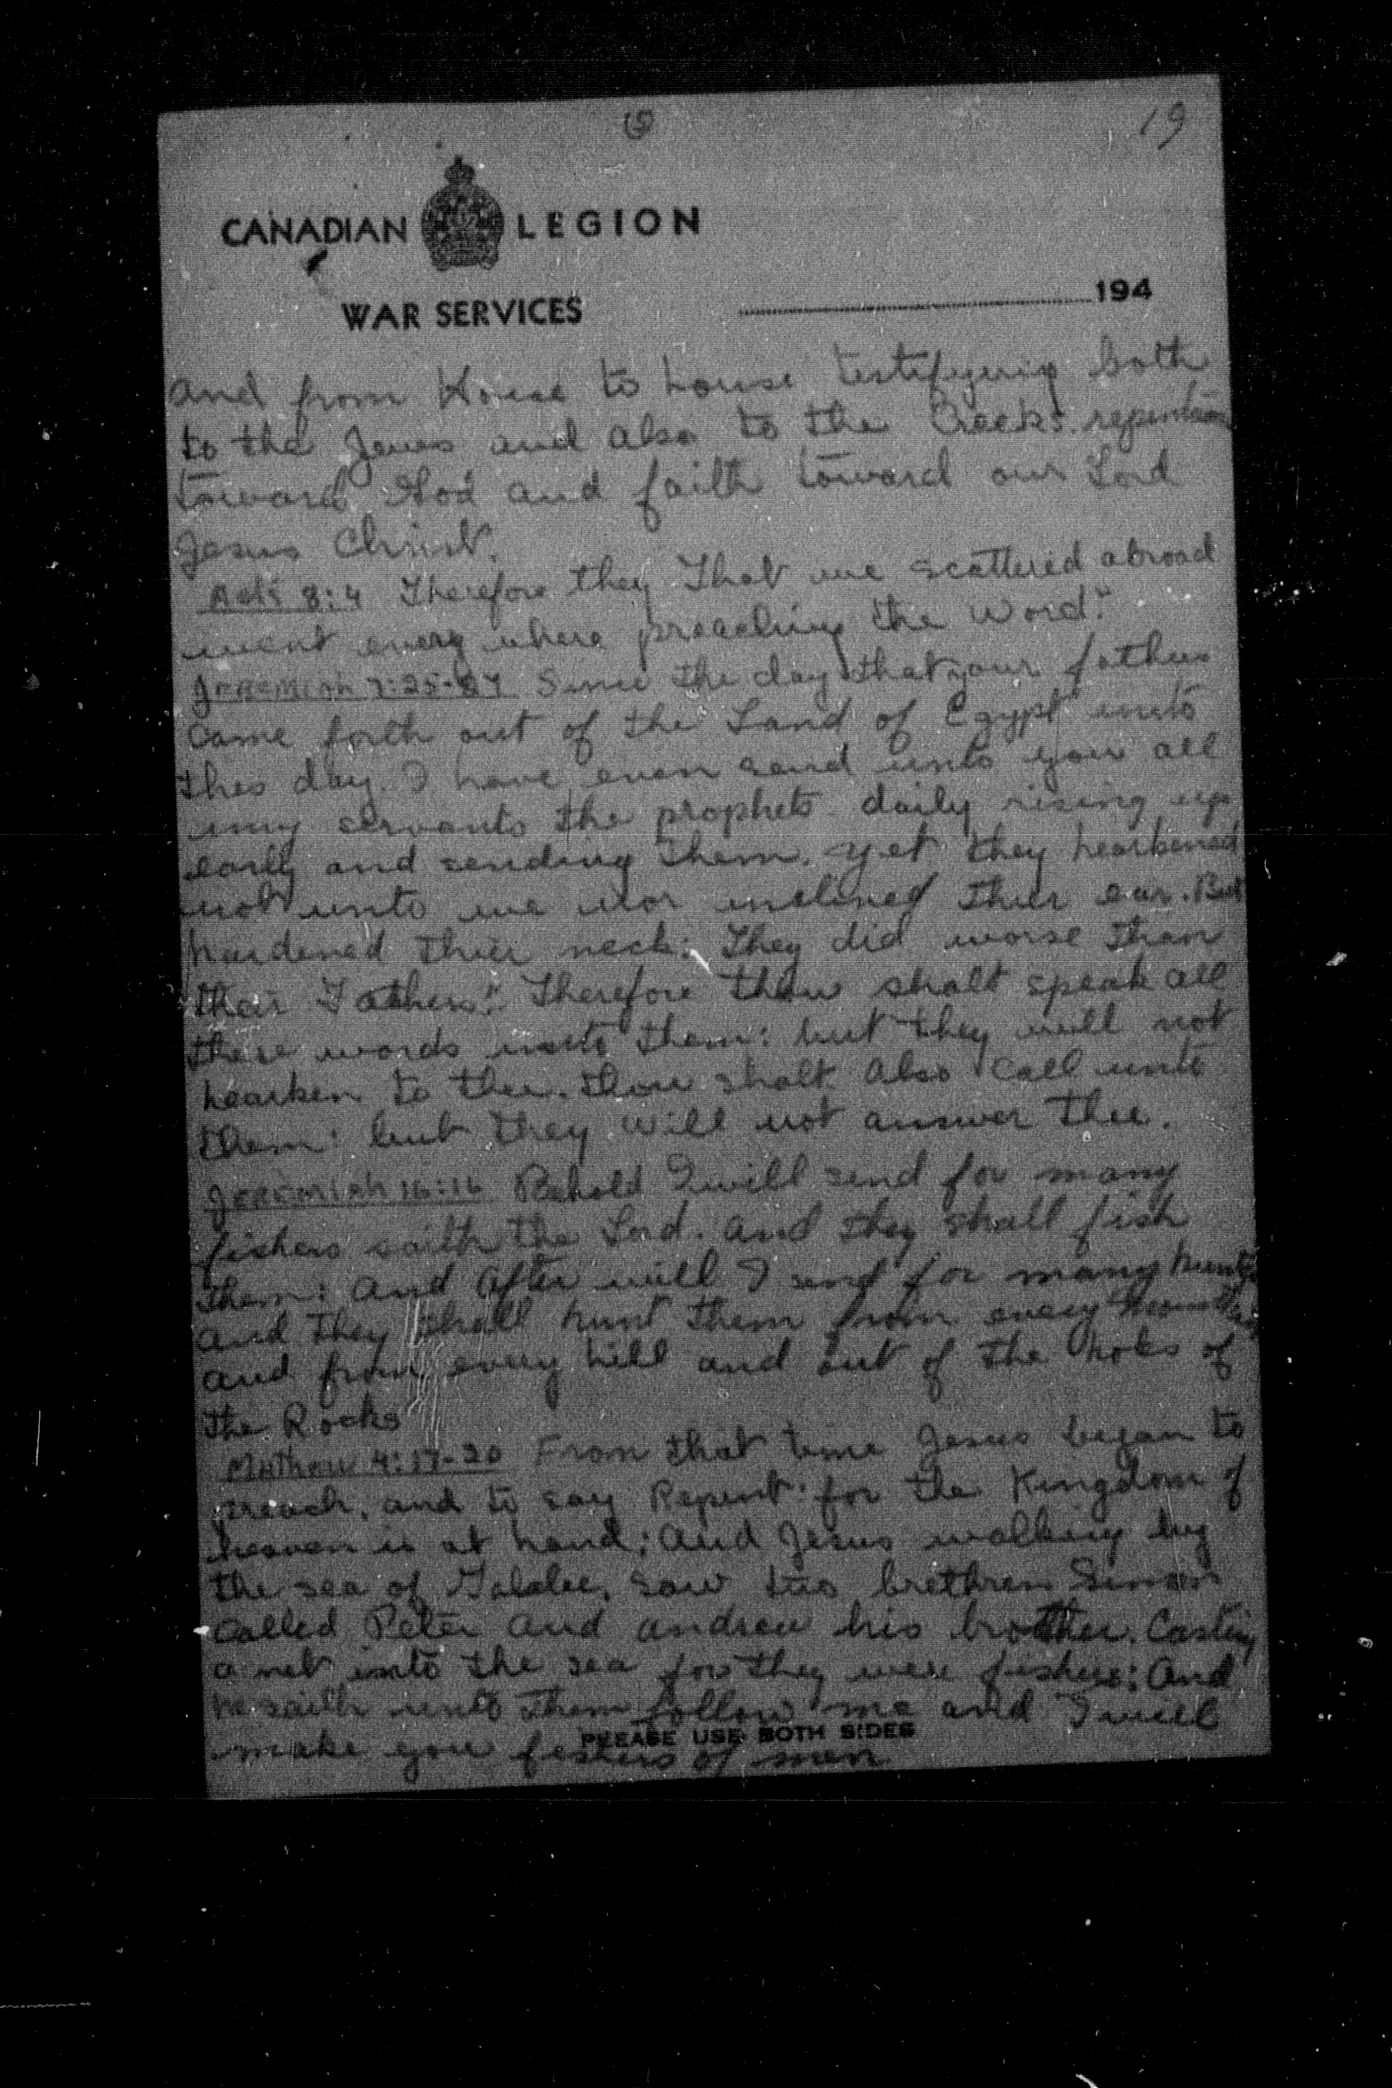 19
CANADIAN LEGION
WAR SERVICES 194
and from House to house testifying both
to the Jews and also to the Greeks. repentance
toward God and faith toward our Lord
Jesus Christ.
Acts 8:4 Therefore they That were scattered abroad
went every where preaching the Word."
Jeremiah 7:25-27 Since the day that your fathers
came forth out of the Land of Egypt unto
this day. I have even send unto you all
my servants the prophets daily rising up
early and sending them. yet they hearkened
not unto me nor inclined thier ear. But
hardened thier neck: They did worse than
their Fathers." Therefore thou shalt speak all
these words unto them: but they will not
hearken to thee. thou shalt also call unto
them: but they will not answer thee.
Jeremiah 16:16 Behold I will send for many
fishers saith the Lord. and they shall fish
them: and after will I send for many hunters
and they shall hunt them from every mountain
and from every hill and out of the holes of
the Rocks
Mathew 4:17-20 From that time Jesus began to
preach, and to say Repent: for the Kingdom of
heaven is at hand; And Jesus walking by
the sea of Galalee, saw two brethren Simon
called Peter and andrew his brother. Casting
a net into the sea for they were fishers: And
he saith unto them follow me and I will
make you fishers of men
PLEASE USE BOTH SIDES